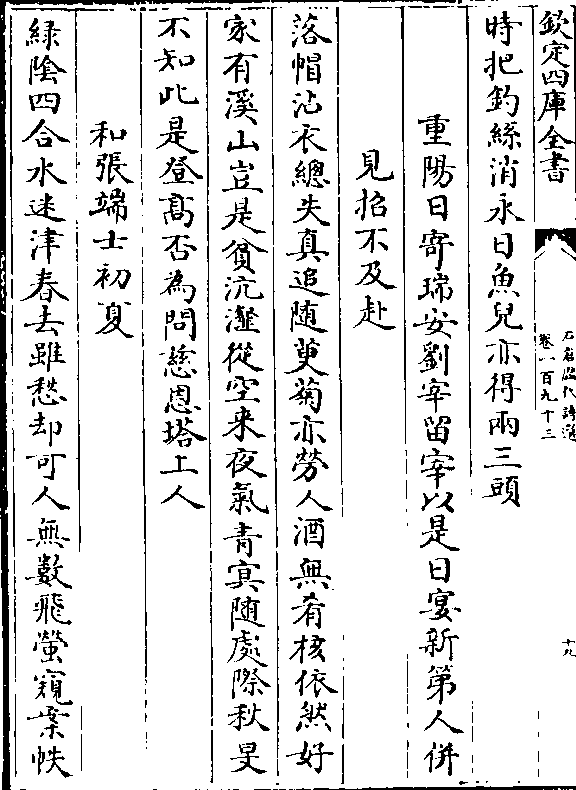 欽定四庫全書
石倉歷代詩選
卷一百九十三
十九
時把釣絲消永日魚兒亦得兩三頭
重陽日寄瑞安劉宰留宰以是日宴新第人併
見招不及赴
落帽沾衣總失真追随萸菊亦勞人酒無肴核依然好
家有溪山豈是貧沆瀣從空来夜氣青㝠随處際秋旻
不知此是登髙否為問慈恩塔上人
和張端士初夏
緑陰四合水迷津春去雖愁却可人無數飛螢窺案帙